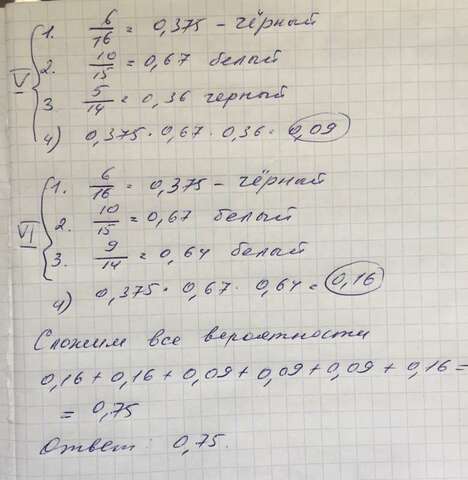 V 1. 6/16 = 0,375 – чёрный
2. 10/15 = 0,67 белый
3. 5/14 = 0,36 черный
4) 0,375 · 0,67 · 0,36 = 0,09
VI 1. 6/16 = 0,375 – чёрный
2. 10/15 = 0,67 белый
3. 9/14 = 0,64 белый
4) 0,375 · 0,67 · 0,64 = 0,16
Сложим все вероятности
0,16 + 0,16 + 0,09 + 0,09 + 0,09 + 0,16 =
= 0,75
Ответ: 0,75.